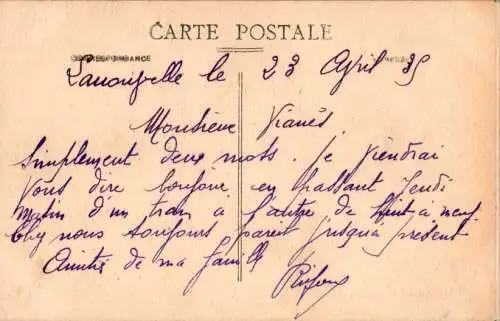 CARTE POSTALE
CORRESPONDANCE
Lanouvelle le 23 April 35
Monsieur Vianès
Simplement deux mots. je viendrai
Vous dire bonjour en passant Jeudi
matin d'un train à l'autre de huit à neuf
Chez nous toujours pareil jusqu'à présent
Amitié de ma famille